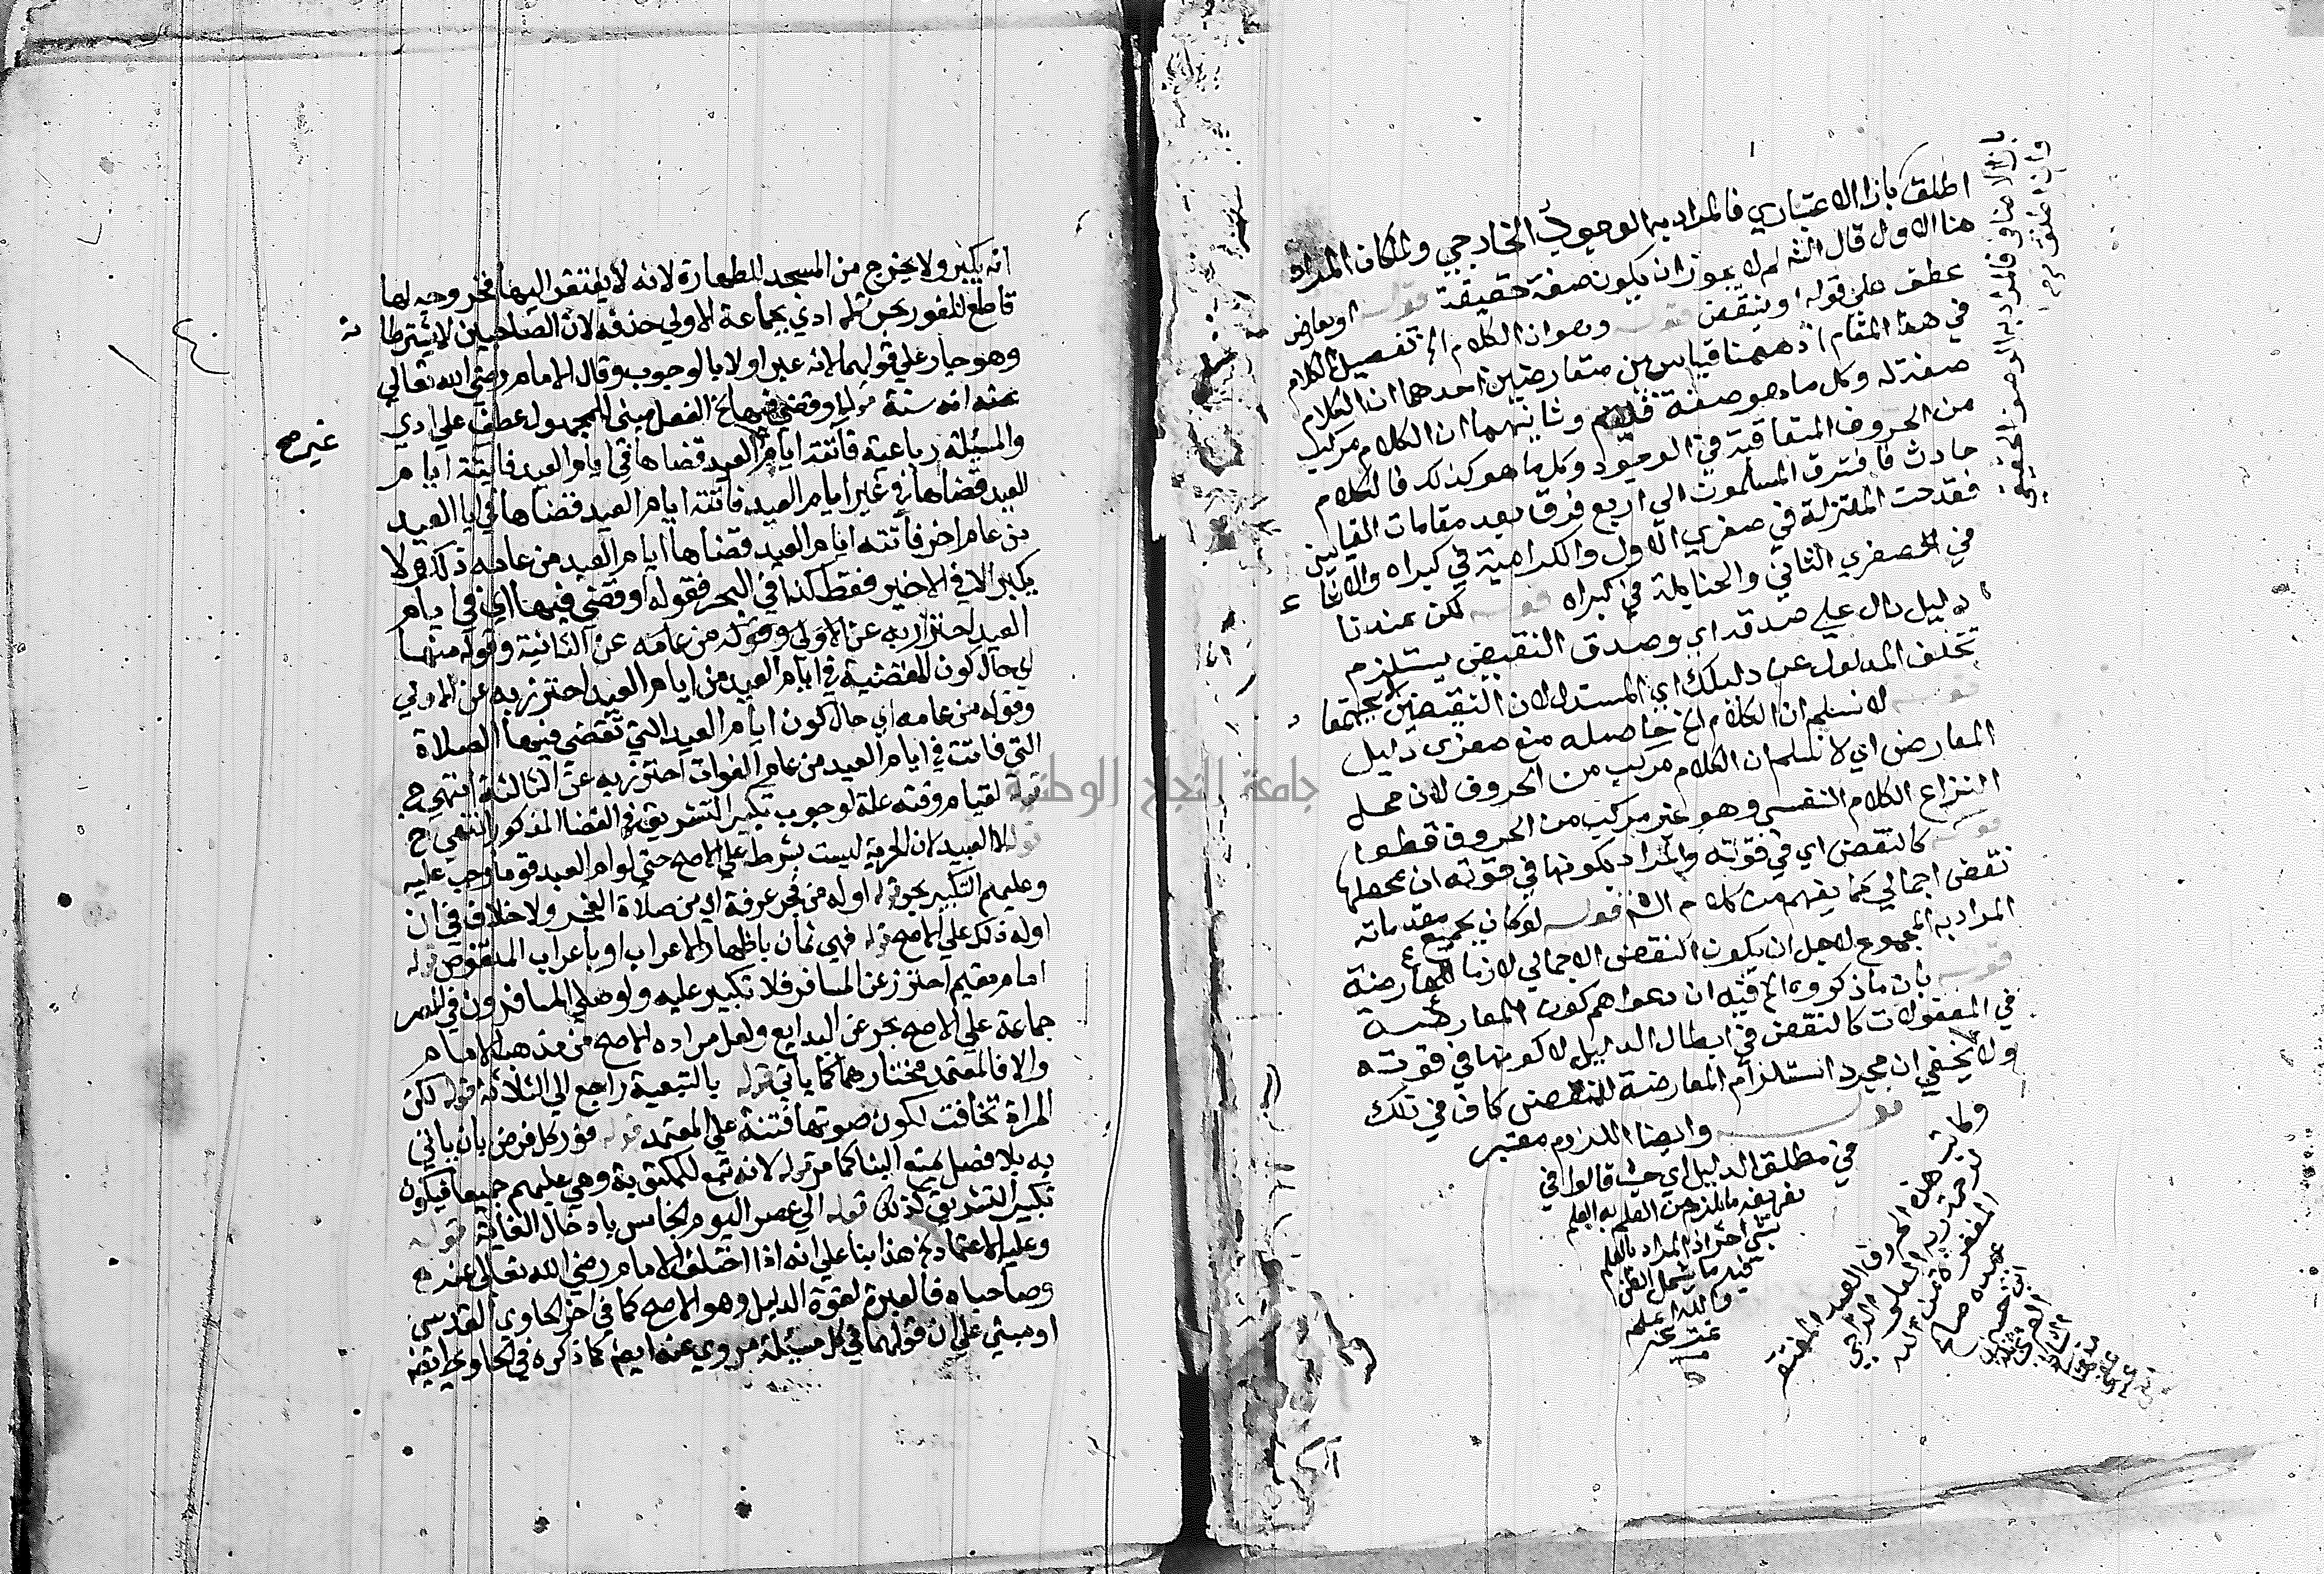 اطلق بازا الاعتباري فالمراد به الوجودي الخارجي والمكان المراد
هنا الاول قال الشه لم لا يجوز ان يكون صفة حقيقة قوله او يعارض
عطف على قوله او ينقض قوله وهو ان الكلام الخ تفصيل الكلام
في هذا المقام اذ ههنا قياسين متعارضين احدهما ان الكلام
صفة له وكل ما هو صفة قديم وثانيهما ان الكلام مركب
من الحروف المتعاقبة في الوجود وكل ما هو كذلك فالكلام
حادث فافترق المسلمون الي اربع فرق بعد مقامات القياسين
فقدحت المعتزلة في صغري الاول والكرامية في كبراه والاشا
في الصغري الثاني والحنابلة في كبراه قوله لكن عندنا
دليل دال على صدقه اي وصدق النقيض يستلزم
تخلف المدلول عن دليلك اي المستدل لان النقيضين لا يجتمعا
قوله لا نسلم ان الكلام الخ حاصله منع صغرى دليل
المعارض اي لا نسلم ان الكلام مركب من الحروف لان محل
النزاع الكلام النفسي وهو غير مركب من الحروف قطعا
قوله كالنقض اي في قوته والمراد بكونها في قوته ان محصلها
نقض اجمالي كما يفهم من كلام الشه قوله لو كان بجميع مقدماته
المراد به المجموع لاجل ان يكون النقض الاجمالي لازما للمعارضة
قوله بان ما ذكروه الخ فيه ان دعواهم كون المعارضة
في المعقولات كالنقض في ابطال الدليل لا كونها في قوته
ولا يخفي ان مجرد استلزام المعارضة للنقض كاف في تلك
قوله وايضا اللزوم معتبر
في مطلق الدليل اي حيث قالوا في
تعريفه ما يلزم من العلم به العلم
بشي اخر اذ المراد بالعلم
ما يشمل الظن
والله اعلم
وكاتب هذه الحروف العبد المفتقر
لرحمة ربه العلى الراجي
المغفرة من الله
عبده صالح
بازا الاضافي فالمراد به الوصف الحقيقي
وان اطلق
انه يكبر ولا يخرج من المسجد للطهارة لانه لا يفتقر اليها فخروجه لها
قاطع للفور بحر قوله ادي بجماعة الاولي حذفه لان الصاحبين لا يشترطا
نه
وهو جار علي قولهما لانه عبر اولا بالوجوب وقال الامام رضي الله تعالي
عنه انه سنة قوله او قضي فيها الخ الفعل مبني للمجهول عطف علي ادي
غير صح
والمسئلة رباعية فائتة ايام العيد قضاها في ايام العيد فايتة ايام
العيد قضاها في غير ايام العيد فائتة ايام العيد قضاها في ايا العيد
من عام اخر فائتة ايام العيد قضاها ايام العيد من عامه ذلك ولا
يكبر الا في الاخير فقط كذا في البحر فقوله او قضي فيها اي في ايام
العيد احترز به عن الاولى وقوله من عامه عن الثانية وقوله منها
اي حال كون المقضية في ايام العيد من ايام العيد احترز به عن الاولي
وقوله من عامه اي حال كون ايام العيد التي تقضي فيها الصلاة
التي فاتت في ايام العيد من عام الفوات احترز به عن الثالثة انتهي ح
قوله لقيام وقته علة لوجوب تكبير التشريق في القضا المذكور انتهي ح
قوله العبيد لان الحرية ليست بشرط علي الاصح حتى لو ام العبد قوما وجب عليه
وعليهم التكبير بحر قوله اوله من فجر عرفة اي من صلاة الفجر ولا خلاف في ان
اوله ذلك علي الاصح قوله فهي ثمان باظهار الاعراب او باعراب المنقوص قوله
امام مقيم احترز عن المسافر فلا تكبير عليه ولو صلي المسافرون في المصر
جماعة علي الاصح بحر عن البدايع ولعل مراده الاصح من مذهب الامام
والا فالمعتمد مختارهما كما ياتي قوله بالتبعية راجع الي الثلاثة قوله لكن
المراة تخافت لكون صوتها فتنة علي المعتمد قوله فور كل فرض بان ياتي
به بلا فصل يمنع البنا كما مر قوله لانه تبع للمكتوبة وهي عليهم جميعا فيكون
تكبير التشريق كذلك قوله الي عصر اليوم الخامس بادخال الغاية قوله
وعليه الاعتماد الخ هذا بنا علي انه اذا اختلف الامام رضي الله تعالي عنه
وصاحباه فالعبرة لقوة الدليل وهو الاصح كما في اخر الحاوي القدسي
او مبني علي ان قولهما في كل مسئلة مروي عنه ايضا كما ذكره في الحاوي ايضا
جامعة النجاح الوطنية